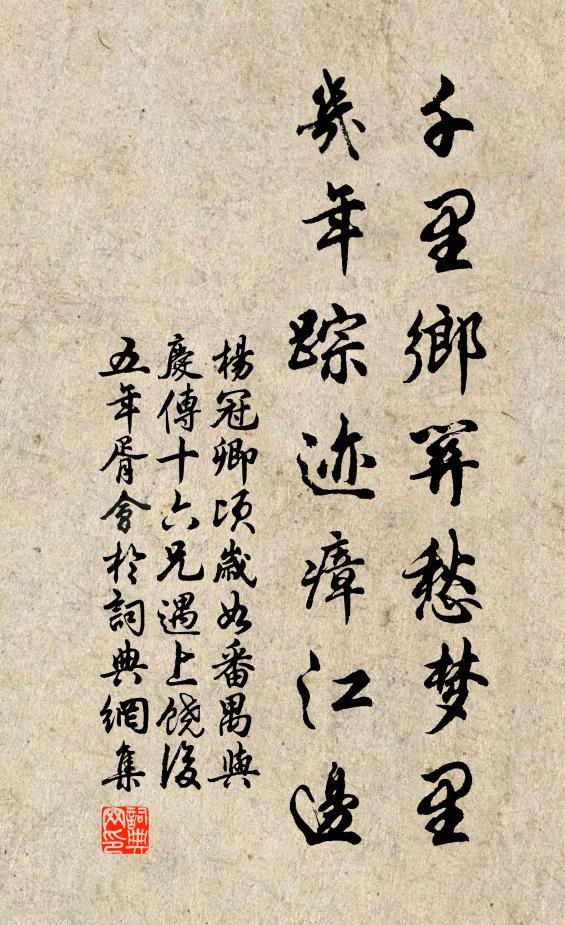 千里鄉關愁梦里
幾年踪迹瘴江邊
楊冠卿頃歲如番禺與
慶傳十六兄遇上饒後
五年胥會於詞典網集
詞典网印